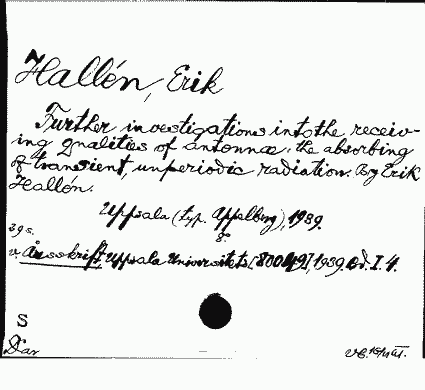 Hallén, Erik
Further investigations into the receiv-
ing qualities of antennæ: the absorbing
of transient, unperiodic radiation. By Erik
Hallén.
Uppsala (typ. Appelberg), 1939.
8:
39 s.
v. Årsskrift Uppsala Universitets, 1939. Bd. I. 4.
S